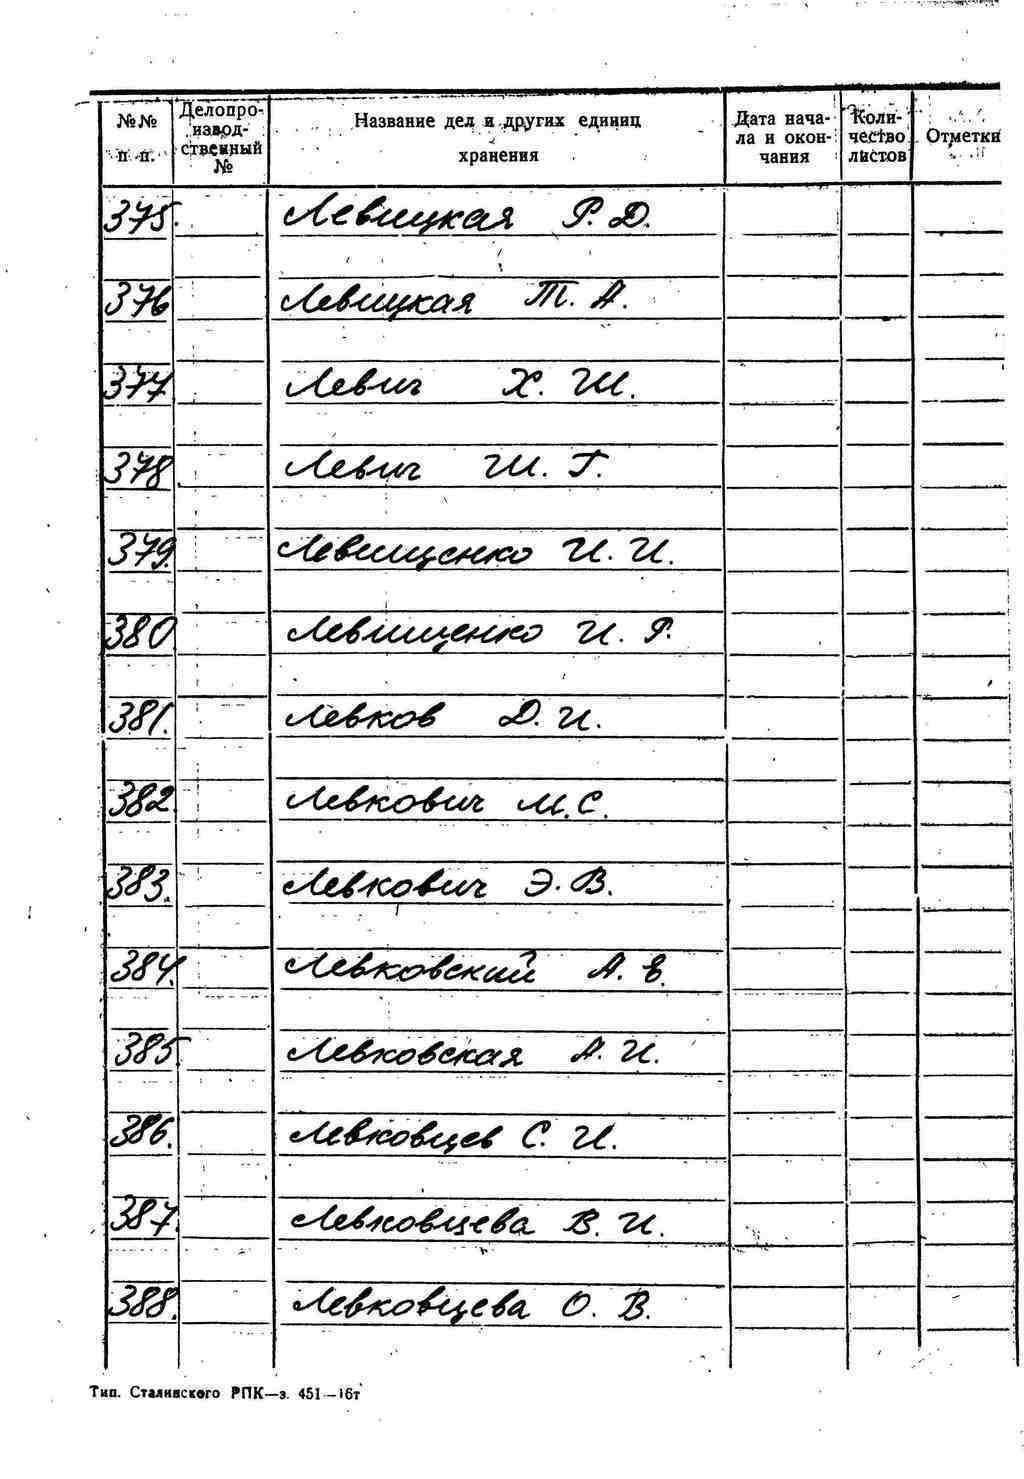 №№ п. п.
Делопро-
извод-
ственный
№
Название дел и других единиц
хранения
Дата нача-
ла и окон-
чания
Коли-
чество
листов
Отметки
375. Левицкая Р. Д.
376 Левицкая Т. А.
377 Левич Х. Ш.
378 Левич Ш. Г.
379. Левищенко И. И.
380 Левищенко И. Р.
381. Левков Д. И.
382. Левкович М. С.
383. Левкович Э. В.
384. Левковский А. Е.
385 Левковская А. И.
386. Левковцев С. И.
387. Левковцева В. И.
388. Левковцева О. В.
Тип. Сталинского РПК—з. 451—16т